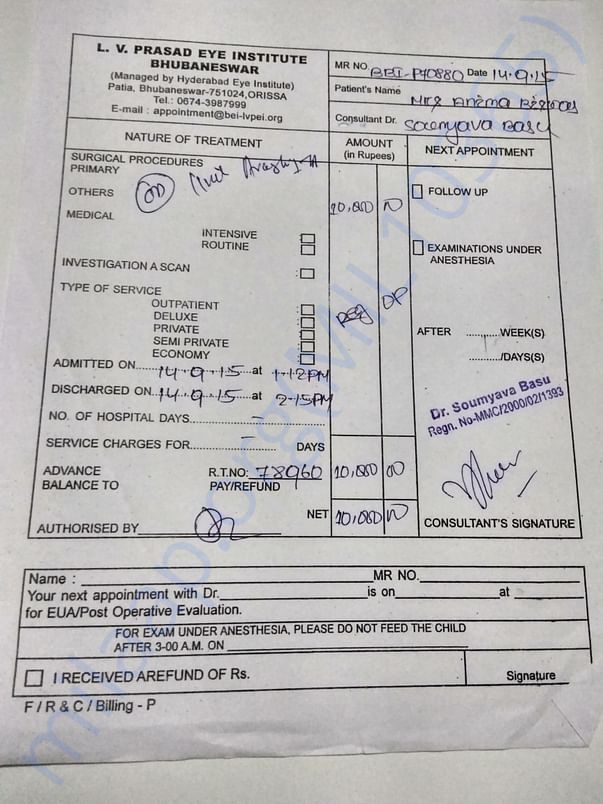 L. V. PRASAD EYE INSTITUTE
BHUBANESWAR
(Managed by Hyderabad Eye Institute)
Patia, Bhubaneswar-751024,ORISSA
Tel.: 0674-3987999
E-mail : appointment@bei-lvpei.org
MR NO. BBI-P70880 Date 14.9.15
Patient's Name Mrs Anima
Consultant Dr. Soumyava Basu
NATURE OF TREATMENT
AMOUNT
(in Rupees)
NEXT APPOINTMENT
SURGICAL PROCEDURES
PRIMARY
OTHERS
MEDICAL
INTENSIVE
ROUTINE
INVESTIGATION A SCAN
TYPE OF SERVICE
OUTPATIENT
DELUXE
PRIVATE
SEMI PRIVATE
ECONOMY
ADMITTED ON 14.9.15 at 1-12PM
DISCHARGED ON 14.9.15 at 2-15PM
NO. OF HOSPITAL DAYS -
SERVICE CHARGES FOR - DAYS
ADVANCE R.T.NO: 78960
BALANCE TO PAY/REFUND
NET
AUTHORISED BY
FOLLOW UP
EXAMINATIONS UNDER
ANESTHESIA
AFTER WEEK(S)
/DAYS(S)
Dr. Soumyava Basu
Regn. No-MMC/2000/02/1393
CONSULTANT'S SIGNATURE
Name : MR NO.
Your next appointment with Dr. is on at
for EUA/Post Operative Evaluation.
FOR EXAM UNDER ANESTHESIA, PLEASE DO NOT FEED THE CHILD
AFTER 3-00 A.M. ON
I RECEIVED AREFUND OF Rs.
Signature
F / R & C / Billing - P